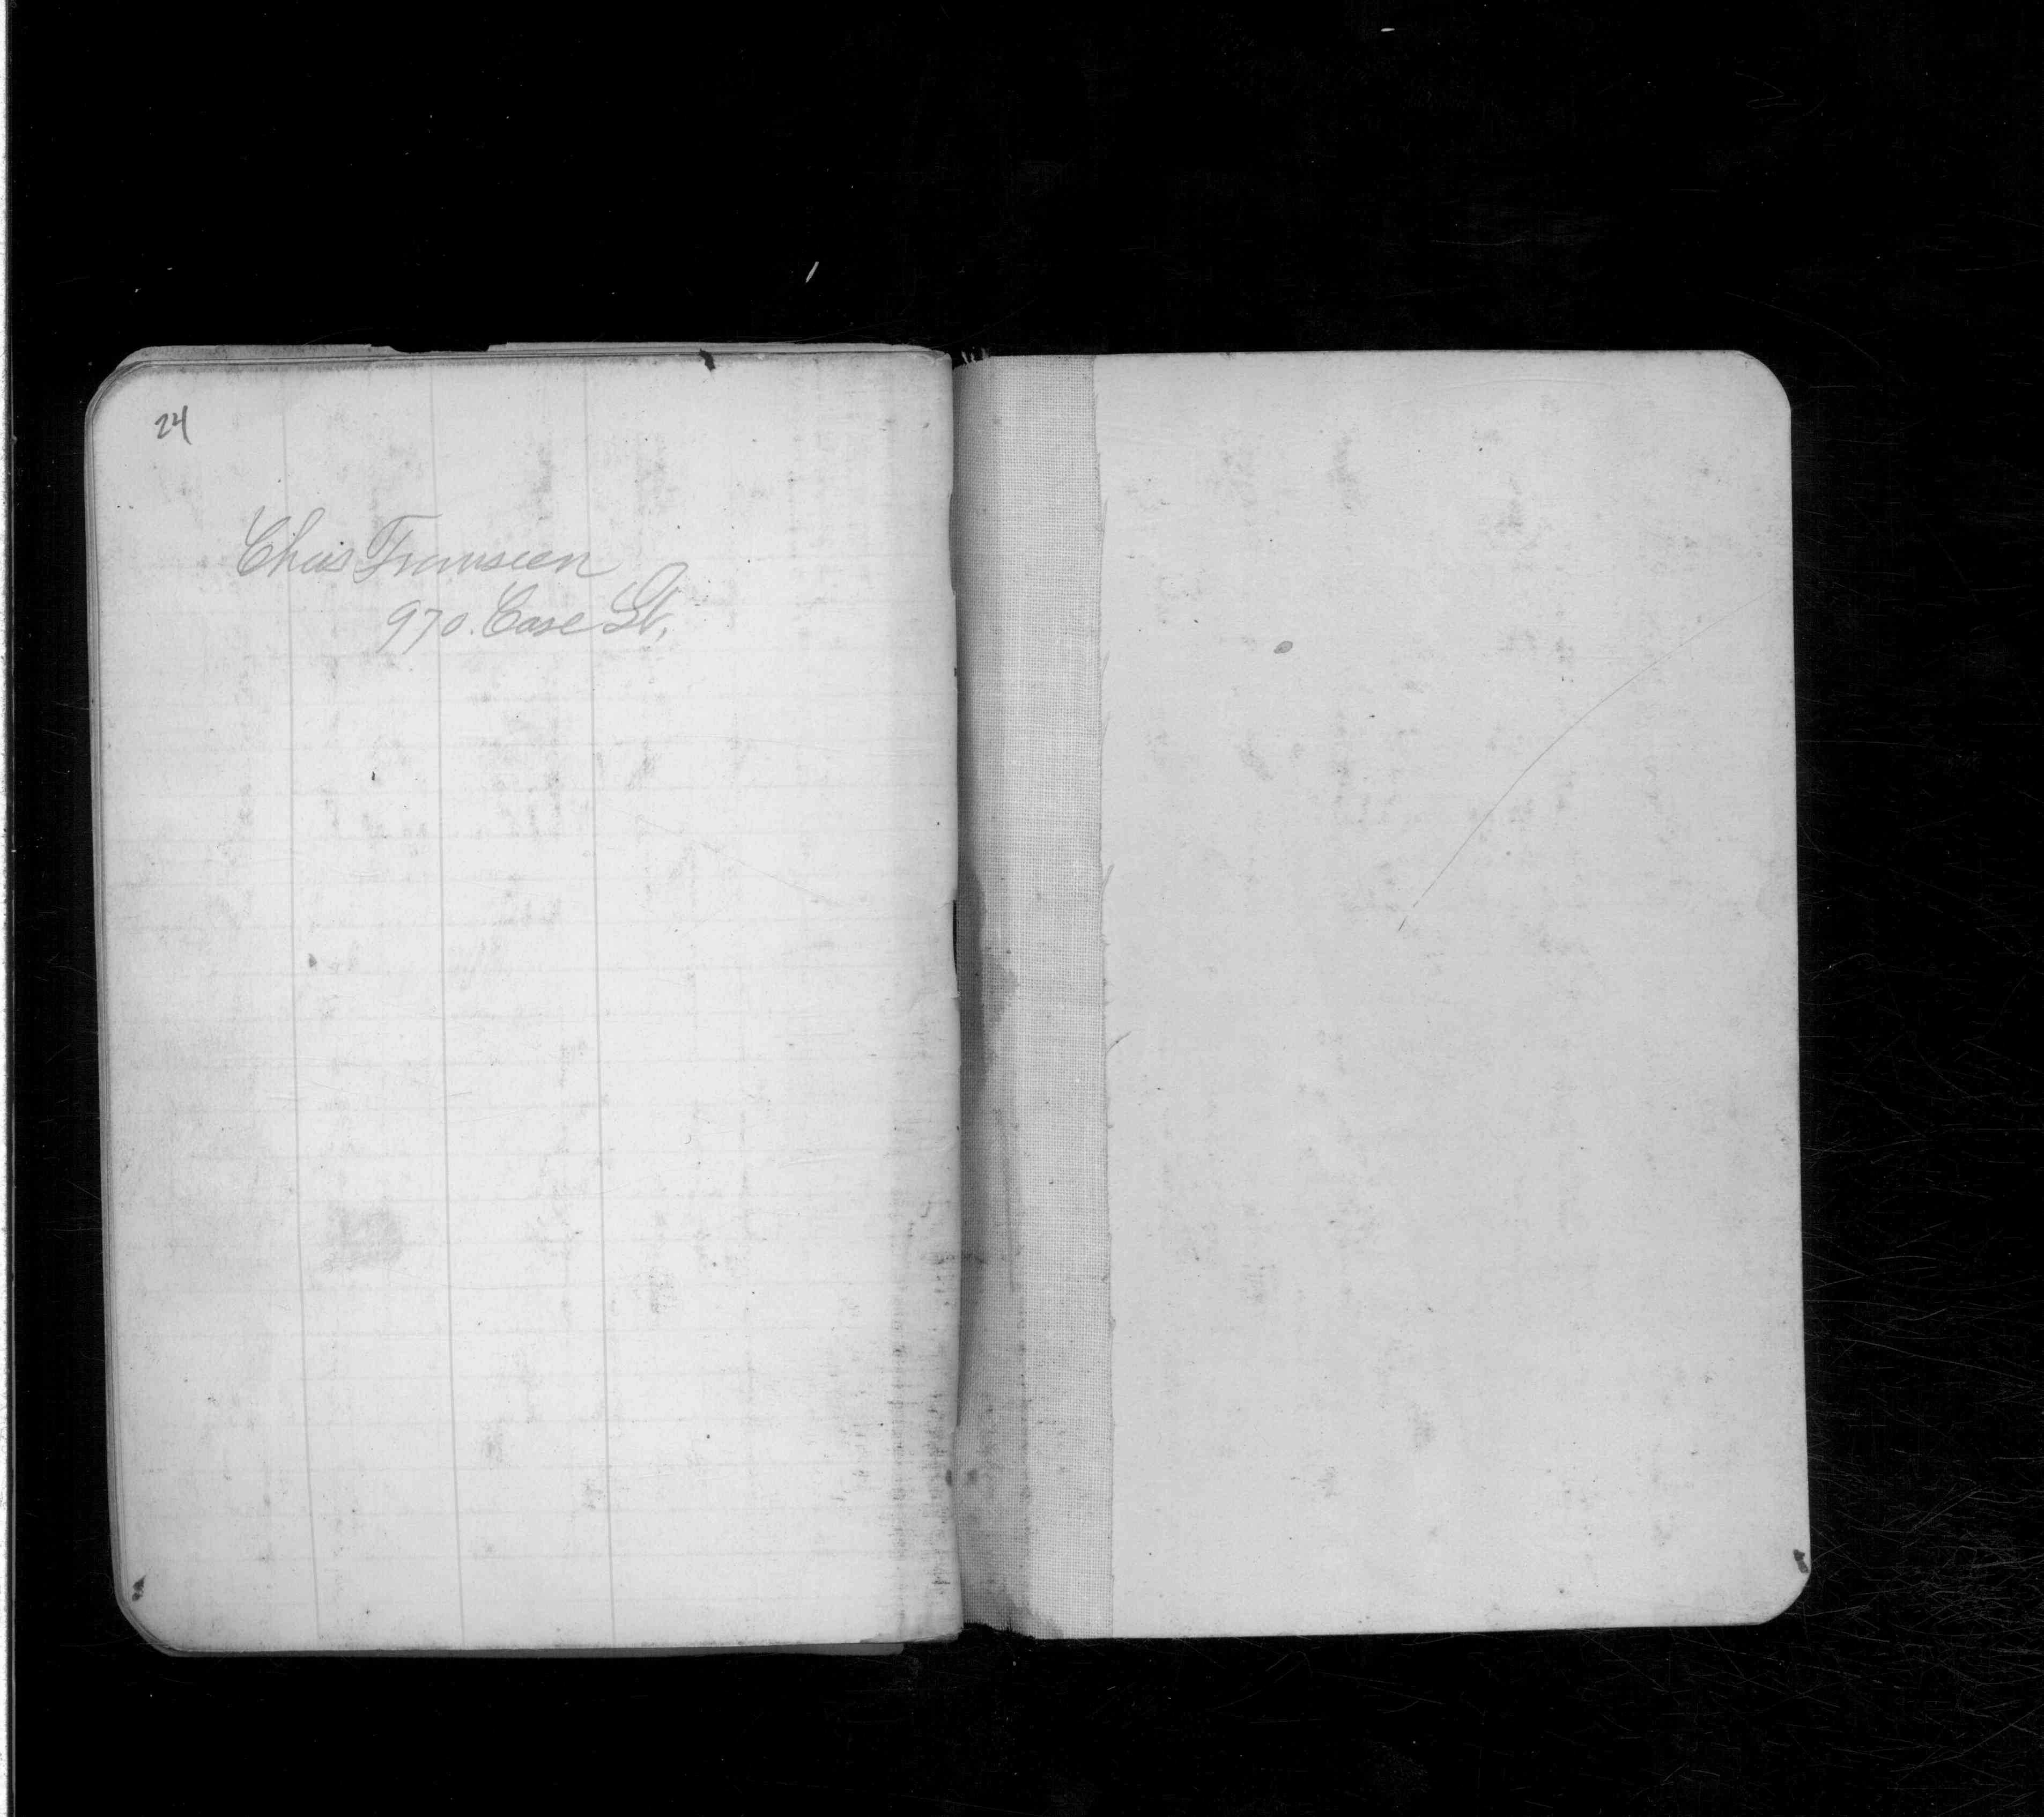 24
Chas Transeen
970. Case St.